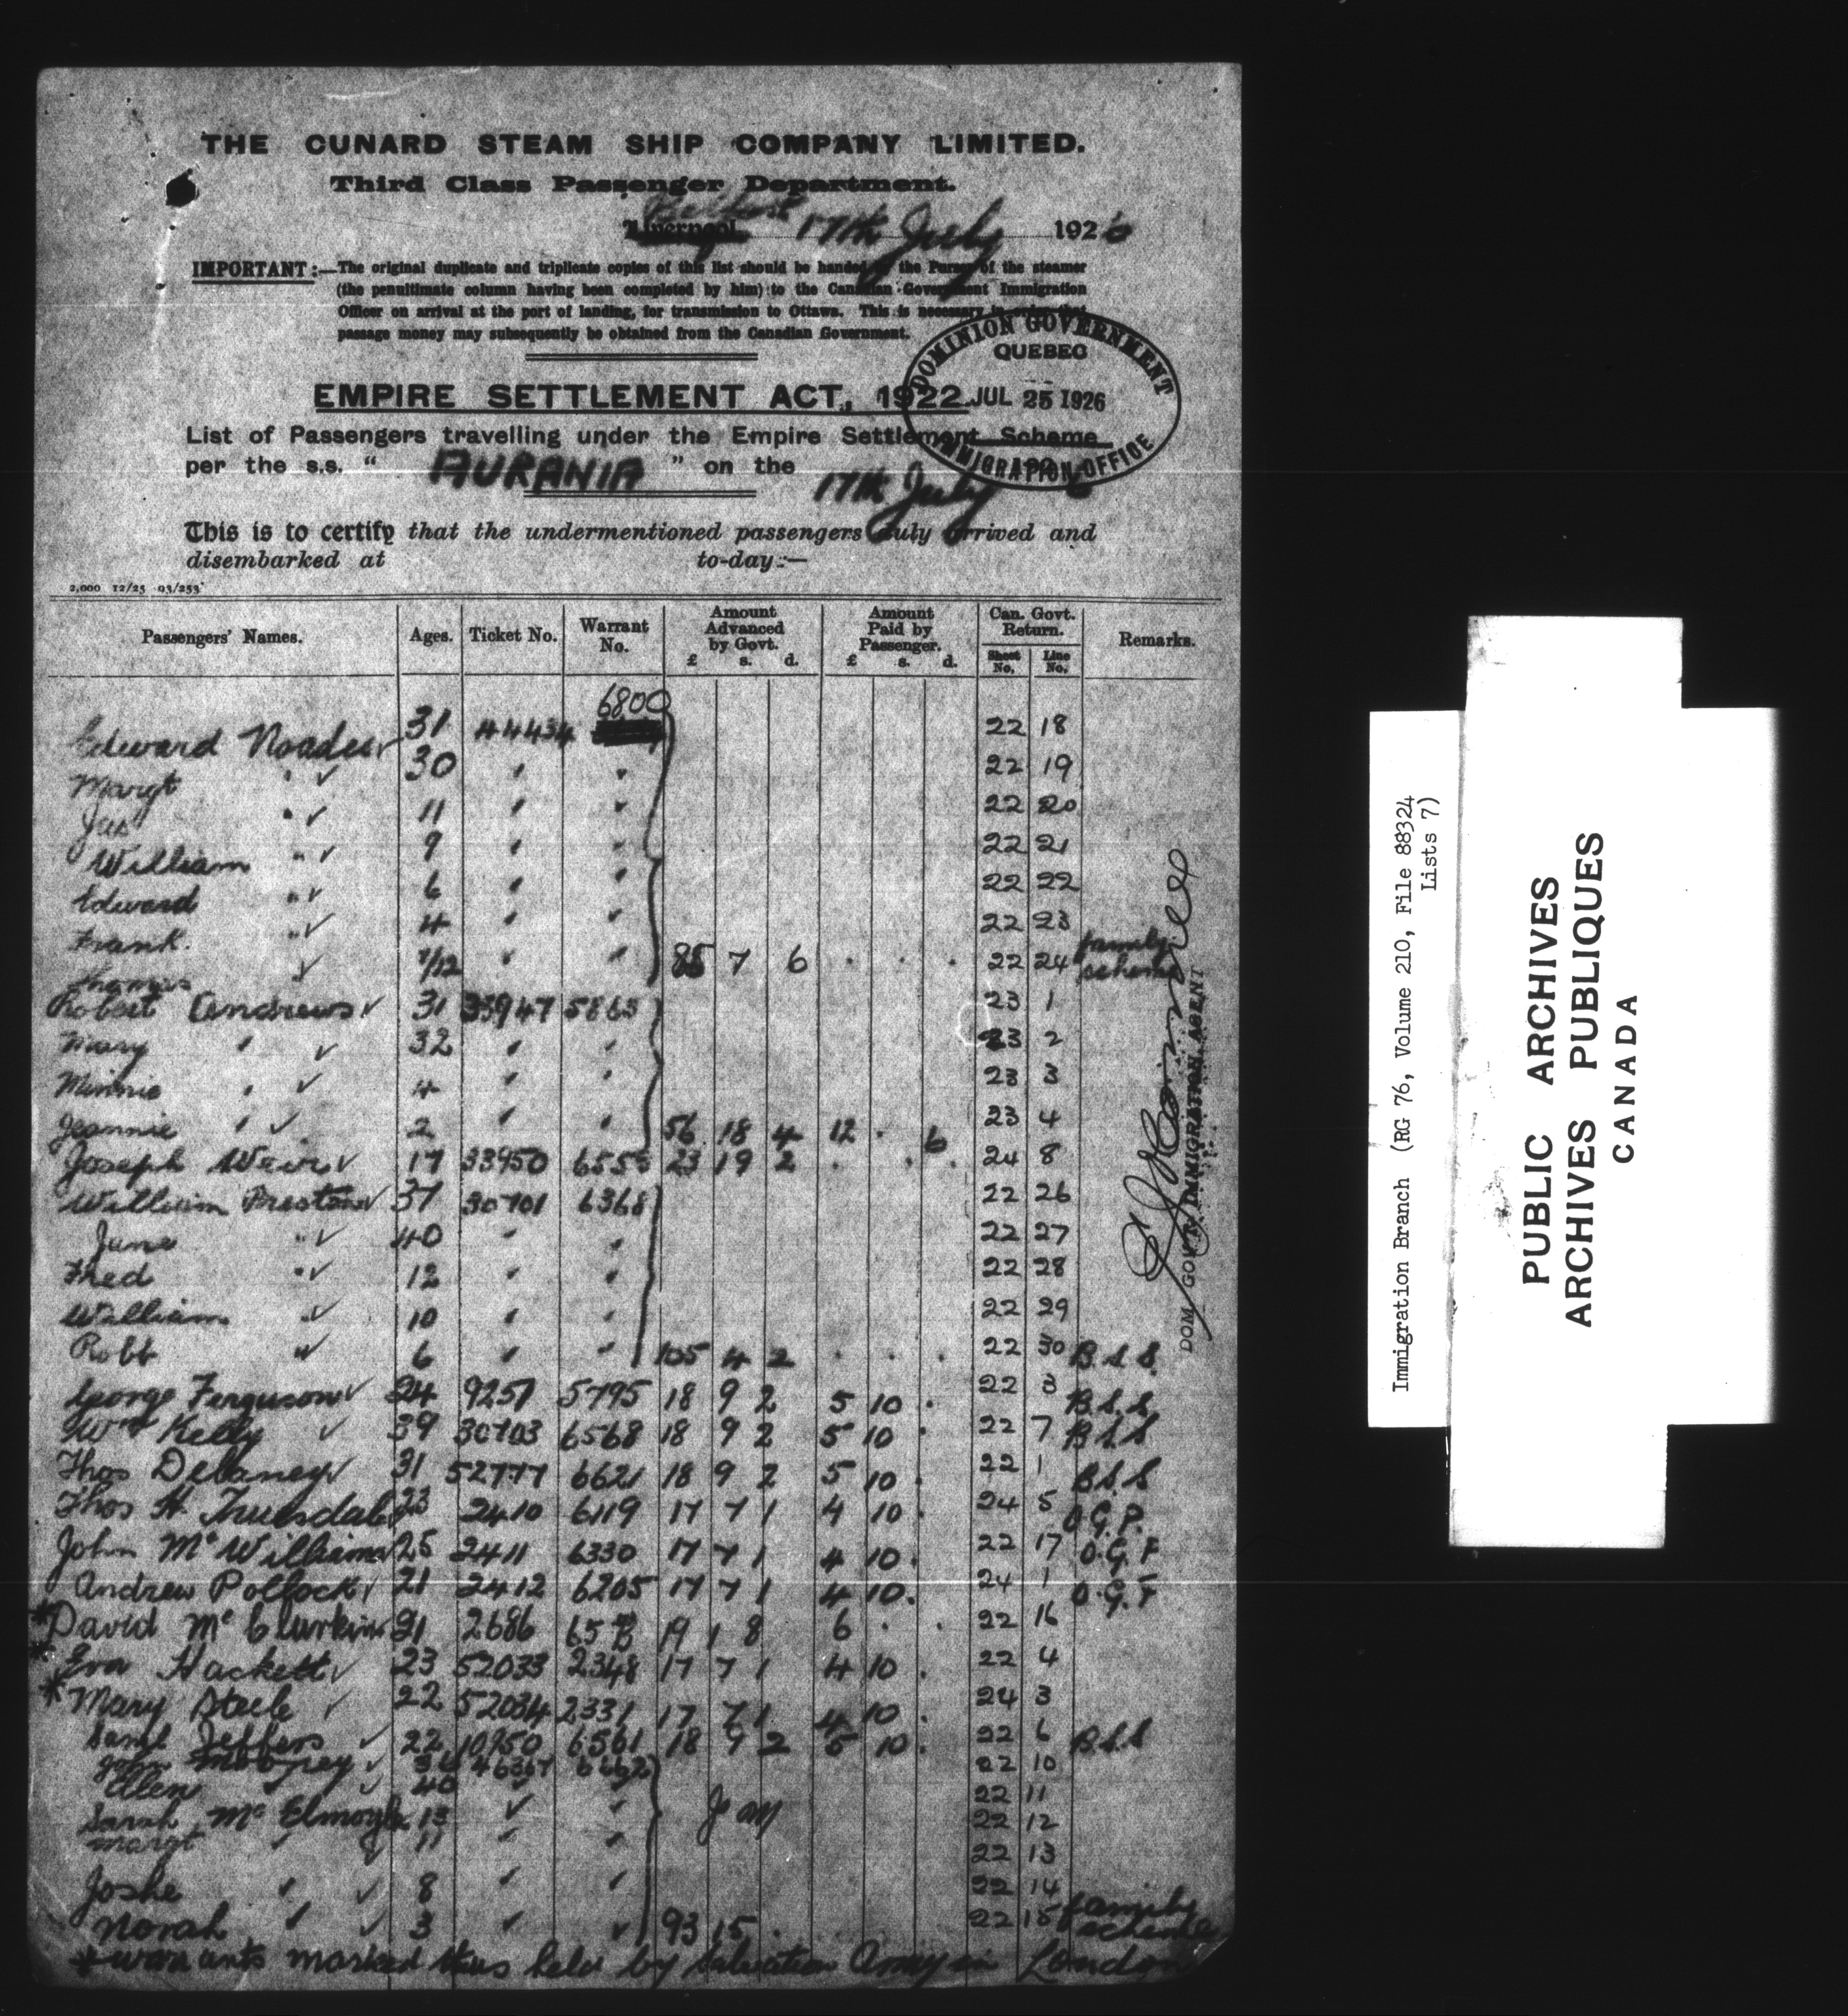 THE CUNARD STEAM SHIP COMPANY LIMITED.
Third Class Passenger Department.
Belfast
Liverpool 17th July 1926
IMPORTANT:—The original duplicate and triplicate copies of this list should be handed by the Purser of the steamer
(the penultimate column having been completed by him) to the Canadian Government Immigration
Officer on arrival at the port of landing, for transmission to Ottawa. This is necessary in order that
passage money may subsequently be obtained from the Canadian Government.
DOMINION GOVERNMENT
QUEBEC
JUL 25 1926
IMMIGRATION OFFICE
EMPIRE SETTLEMENT ACT, 1922.
List of Passengers travelling under the Empire Settlement Scheme
per the s.s. " AURANIA " on the 17th July 6
This is to certify that the undermentioned passengers duly arrived and
disembarked at to-day:—
2,000 12/25 93/253
Passengers' Names. Ages. Ticket No. Warrant No. Amount Advanced by Govt. £ s. d. Amount Paid by Passenger. £ s. d. Can. Govt. Return. Sheet No. Line No. Remarks.
6800
Edward Noades ✓ 31 44434 22 18
Margt " ✓ 30 " " 22 19
Jas " ✓ 11 " " 22 20
William " ✓ 9 " " 22 21
Edward " ✓ 6 " " 22 22
Frank. " ✓ 4 " " 22 23
Thomas ✓ /12 " " 85 7 6 . . . 22 24 family scheme
Robert Andrews ✓ 31 33947 5863 23 1
Mary " ✓ 32 " " 23 2
Minnie " ✓ 4 " " 23 3
Jeannie " ✓ 2 " " 56 18 4 12 . 6 23 4
Joseph Weir ✓ 17 33950 6555 23 19 2 . . . 24 8
William Preston ✓ 37 30701 6368 22 26
Jane " ✓ 40 " " 22 27
Fred " ✓ 12 " " 22 28
William " ✓ 10 " " 22 29
Robt " ✓ 6 " " 105 4 2 . . . 22 30 B.S.S.
George Ferguson ✓ 24 9257 5795 18 9 2 5 10 . 22 3 B.S.S.
Wm Kelly ✓ 39 30703 6568 18 9 2 5 10 . 22 7 B.S.S
Thos Delaney ✓ 31 52777 6621 18 9 2 5 10 . 22 1 B.S.S
Thos H. Truesdale 23 2410 6119 17 7 1 4 10 . 24 5 O.G.P.
John McWilliams 25 2411 6330 17 7 1 4 10 . 22 17 O.G.F
Andrew Pollock ✓ 21 2412 6205 17 7 1 4 10 . 24 1 O.G.F
* David McClurkin 21 2686 19 1 8 6 . . 22 16
* Eva Hackett ✓ 23 52033 2348 17 7 1 4 10 . 22 4
* Mary Steele ✓ 22 52034 2331 17 7 1 4 10 . 24 3
Saml Jeffers ✓ 22 10950 6561 18 9 2 5 10 . 22 6 B.S.S
John ✓ 36 46367 6662 22 10
Ellen " ✓ 40 22 11
Sarah McElmoyle 13 ✓ " 22 12
Margt " ✓ 11 " " 22 13
Joshe " ✓ 8 " " 22 14
Norah " ✓ 3 " " 93 15 . 22 15 family scheme
* warrants marked thus held by Salvation Army in London
DOM. GOV'T. IMMIGRATION AGENT
Immigration Branch (RG 76, Volume 210, File 88324
Lists 7)
PUBLIC ARCHIVES
ARCHIVES PUBLIQUES
CANADA